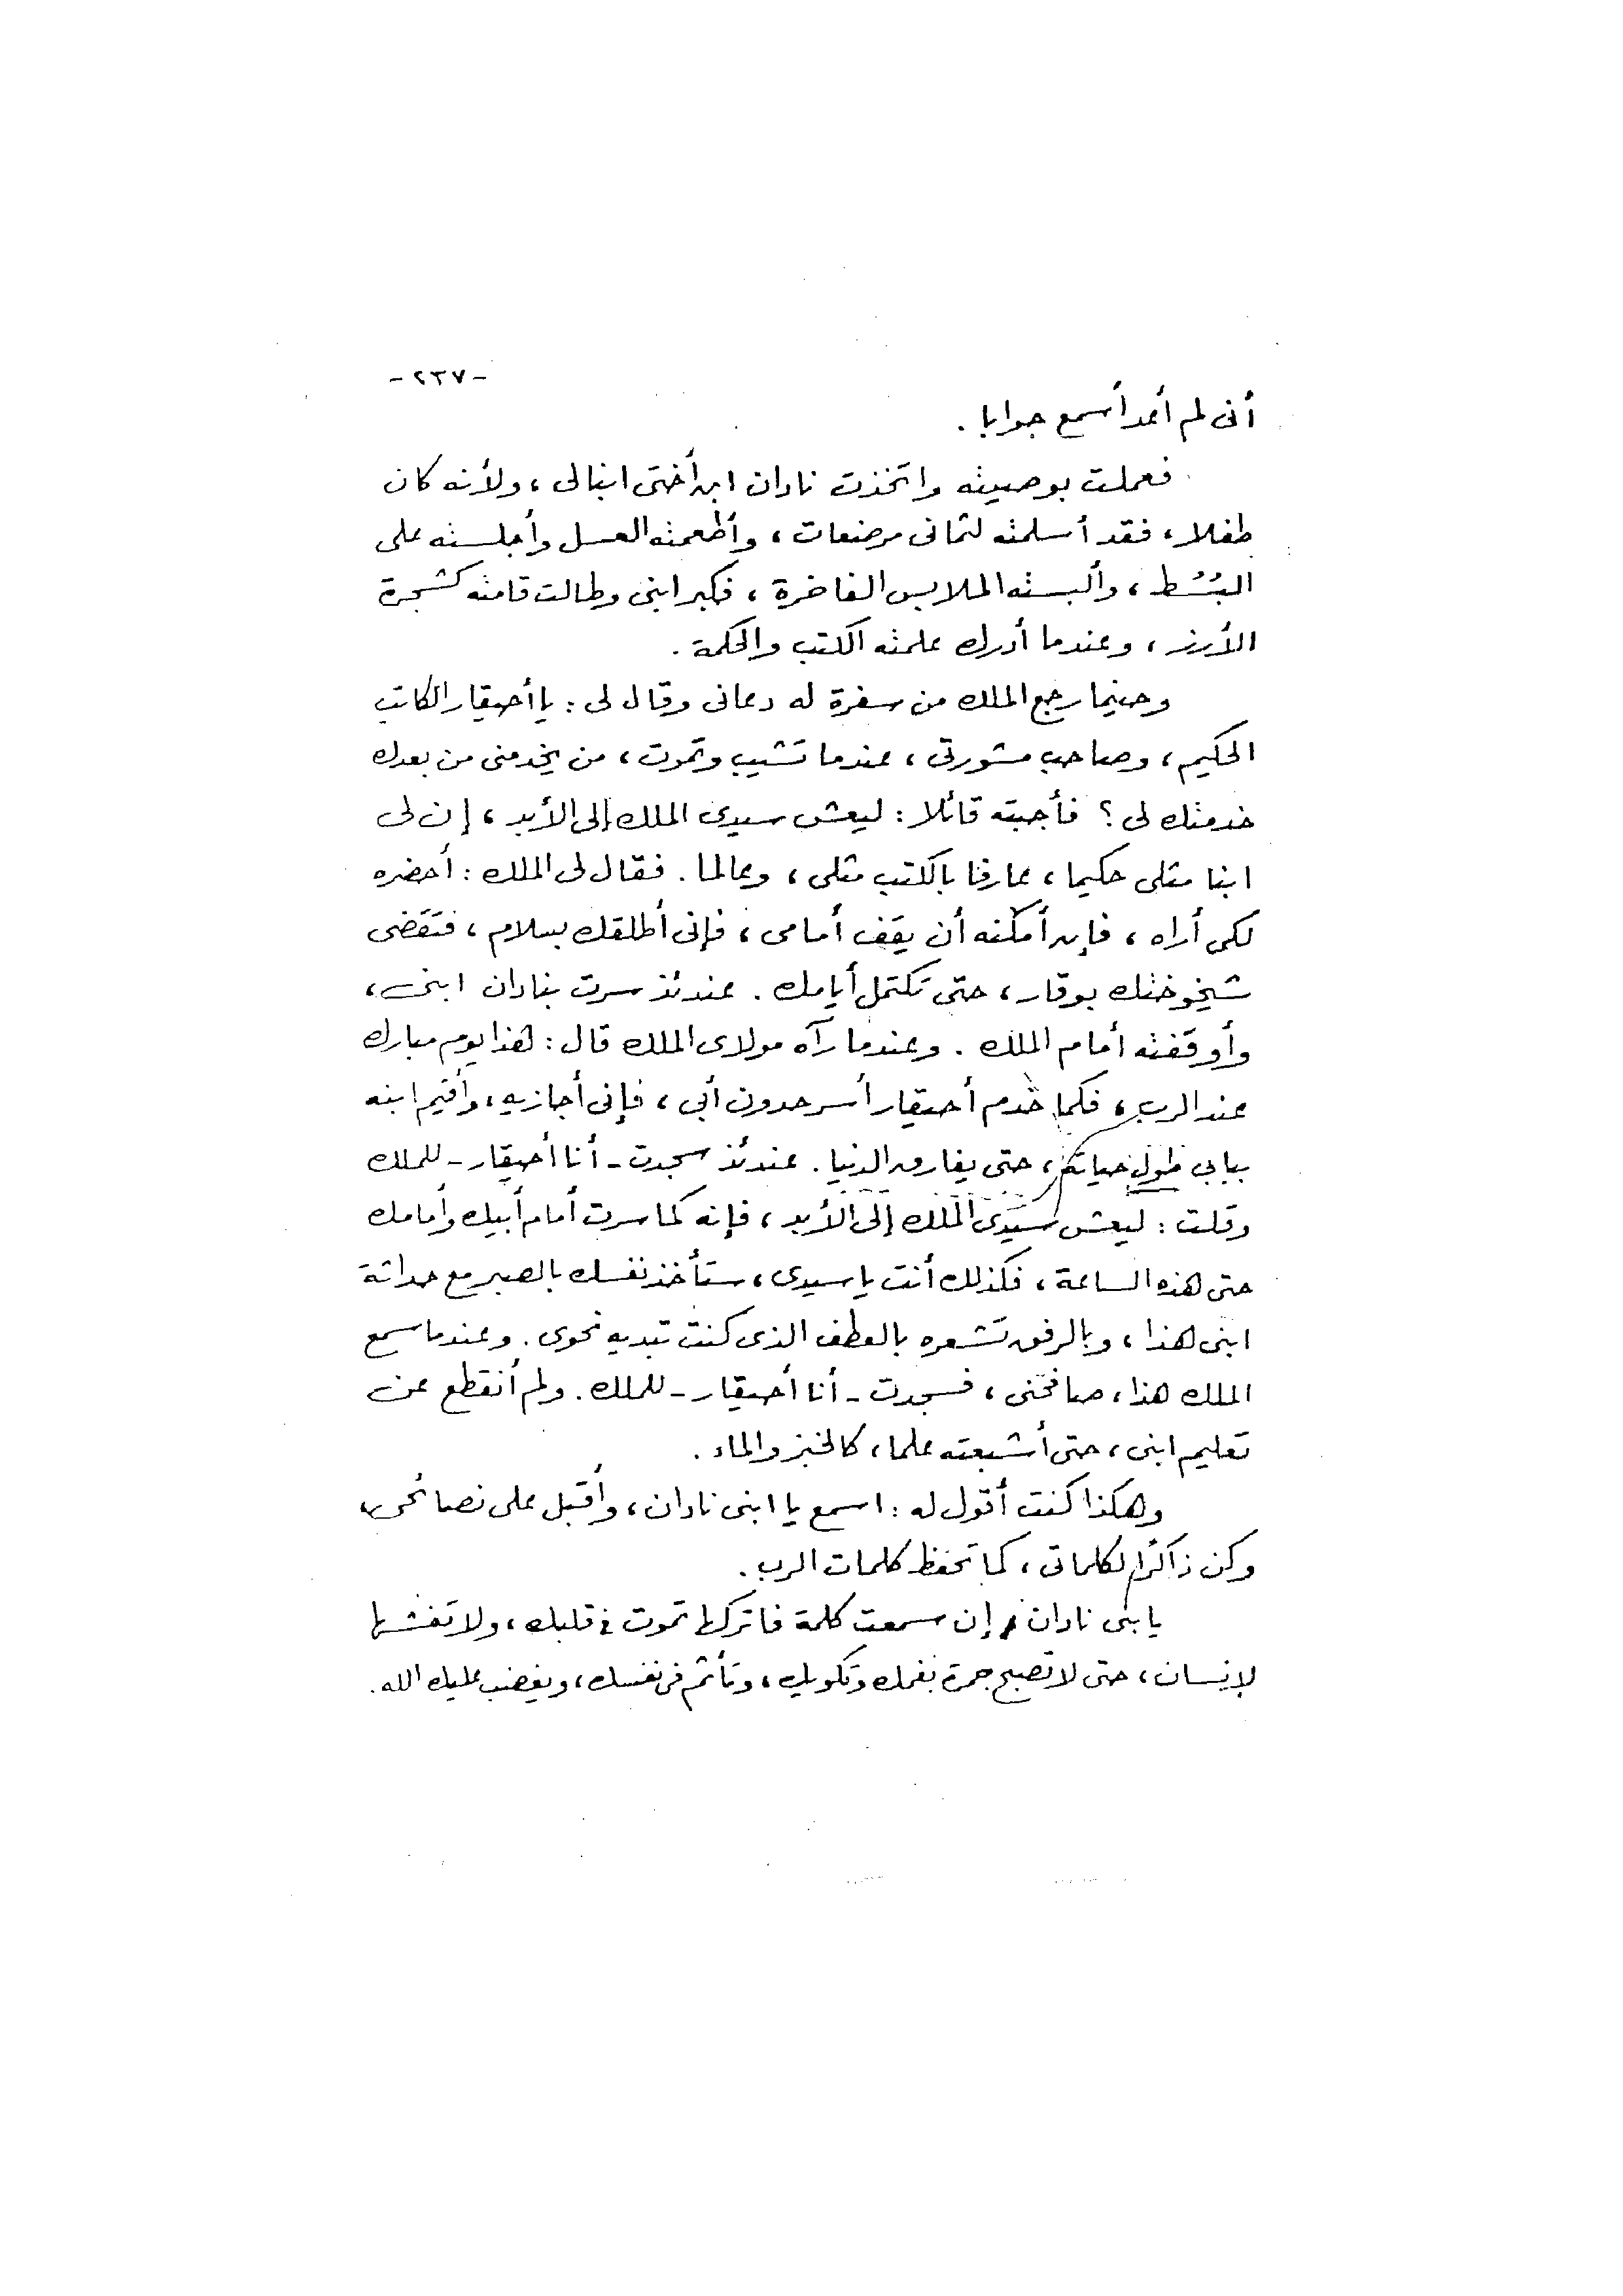 - ٢٣٧ -
أنى لم أعد أسمع جوابا .
فعملت بوصيته واتخذت نادان ابن أختى ابنا لى ، ولأنه كان
طفلا ، فقد أسلمته لثمانى مرضعات ، وأطعمته العسل وأجلسته على
البُسُط ، وألبسته الملابس الفاخرة ، فكبر ابنى وطالت قامته كشجرة
الأرز ، وعندما أدرك علمته الكتب والحكمة .
وحينما رجع الملك من سفرة له دعانى وقال لى : يا أحيقار الكاتب
الحكيم ، وصاحب مشورتى ، عندما تشيب وتموت ، من يخدمنى من بعدك
خدمتك لى ؟ فأجبته قائلا : ليعش سيدى الملك إلى الأبد ، إن لى
ابنا مثلى حكيما ، عارفا بالكتب مثلى ، وعالما . فقال لى الملك : أحضره
لكى أراه ، فإن أمكنه أن يقف أمامى ، فإنى أطلقك بسلام ، فتقضى
شيخوختك بوقار ، حتى تكتمل أيامك . عندئذ سرت بنادان ابنى ،
وأوقفته أمام الملك . وعندما رآه مولاى الملك قال : هذا يوم مبارك
عند الرب ، فكما خدم أحيقار أسرحدون أبى ، فإنى أجازيه ، وأقيم ابنه
ببابى طول حياته ، حتى يفارق الدنيا . عندئذ سجدت - أنا أحيقار - للملك
وقلت : ليعش سيدى الملك إلى الأبد ، فإنه كما سرت أمام أبيك وأمامك
حتى هذه الساعة ، فكذلك أنت يا سيدى ، ستأخذ نفسك بالصبر مع حداثة
ابنى هذا ، وبالرفق تشعره بالعطف الذى كنت تبديه نحوى . وعندما سمع
الملك هذا ، صافحنى ، فسجدت - أنا أحيقار - للملك . ولم أنقطع عن
تعليم ابنى ، حتى أشبعته علما ، كالخبز والماء .
وهكذا كنت أقول له : اسمع يا ابنى نادان ، وأقبل على نصائحى ،
وكن ذاكرا لكلماتى ، كما تحفظ كلمات الرب .
يا بنى نادان ، إن سمعت كلمة فاتركها تموت فى قلبك ، ولا تفشها
لإنسان ، حتى لا تصبح جمرة بفمك وتكويك ، وتأثم فى نفسك ، ويغضب عليك الله .